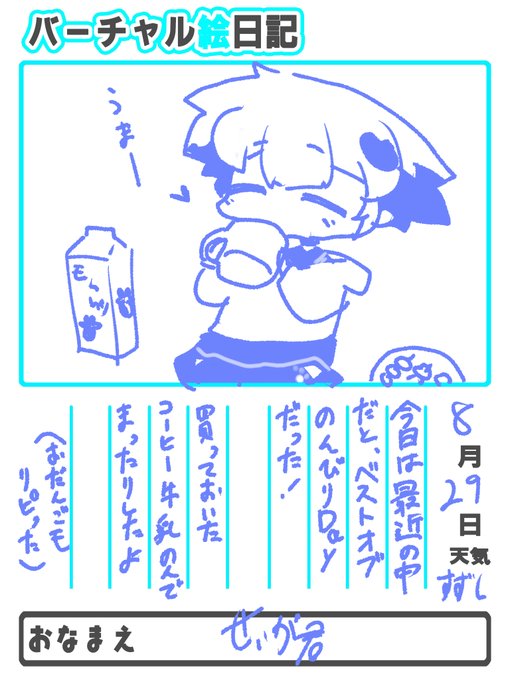 バーチャル絵日記
うまー
モーの
8月29日
天気 すずし
今日は最近の中
だと、ベストオブ
のんびりDay
だった!
買っておいた
コーヒー牛乳のんで
まったりしたよ
(おだんごも
リピった)
おなまえ せいが君